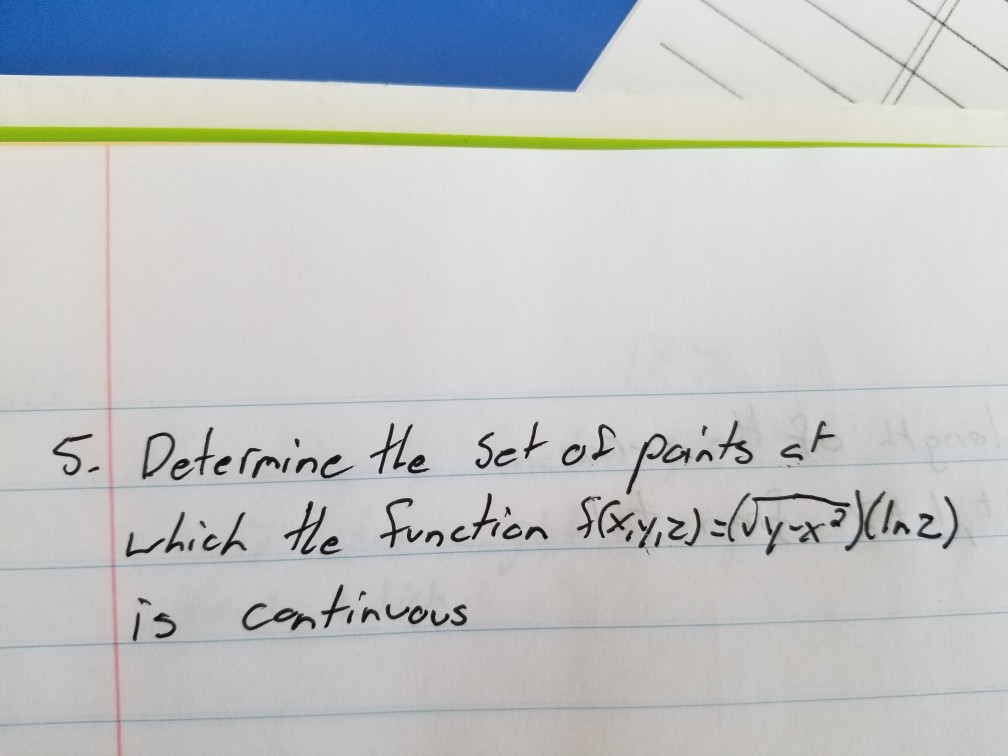 5. Determine the set of points at
which the function f(x,y,z)=(√y-x²)(ln z)
is continuous